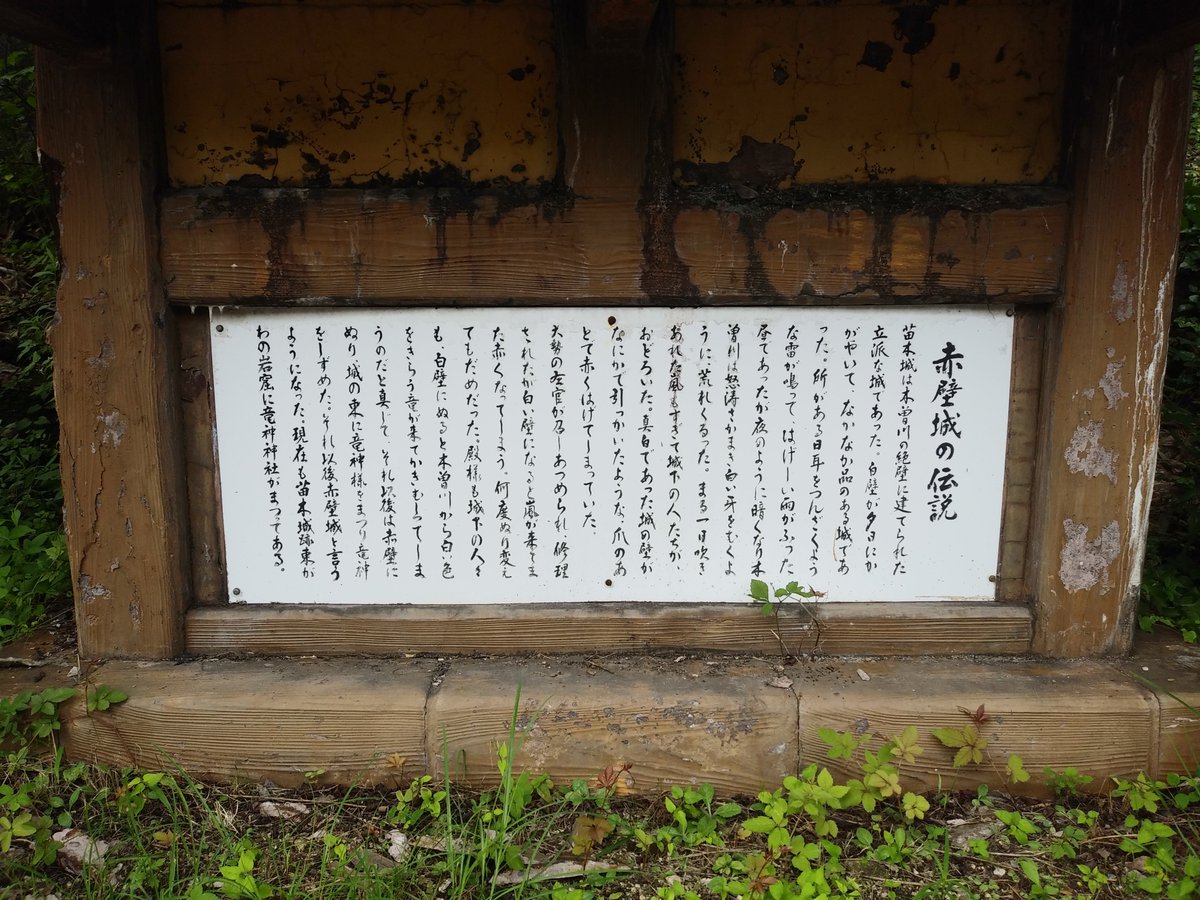 赤壁城の伝説
苗木城は木曽川の絶壁に建てられた
立派な城であった。白壁が夕日にか
がやいて、なかなか品のある城であ
った。所がある日耳をつんざくよう
な雷が鳴って、はげしい雨がふった
昼であったが夜のように暗くなり木
曽川は怒涛さかまき白い牙をむくよ
うに荒れくるった。まる一日吹き
あれた嵐もすぎて城下の人たちが
おどろいた。真白であった城の壁が
なにかで引っかいたような、爪のあ
とで赤くはげてしまっていた
大勢の左官が召しあつめられ、修理
されたが白い壁になると嵐が来てま
た赤くなってしまう。何度ぬり変え
てもだめだった。殿様も城下の人々
も、白壁にぬると木曽川から白い色
をきらう竜が来てかきむしってしま
うのだと真じて、それ以後は赤壁に
ぬり城の東に竜神様をまつり竜神
をしずめた。それ以後赤壁城と言う
ようになった。現在も苗木城跡東が
わの岩窟に竜神神社がまつってある。